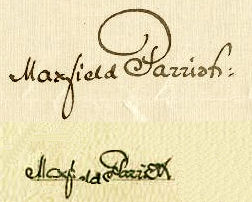 Maxfield Parrish:
Maxfield Parrish